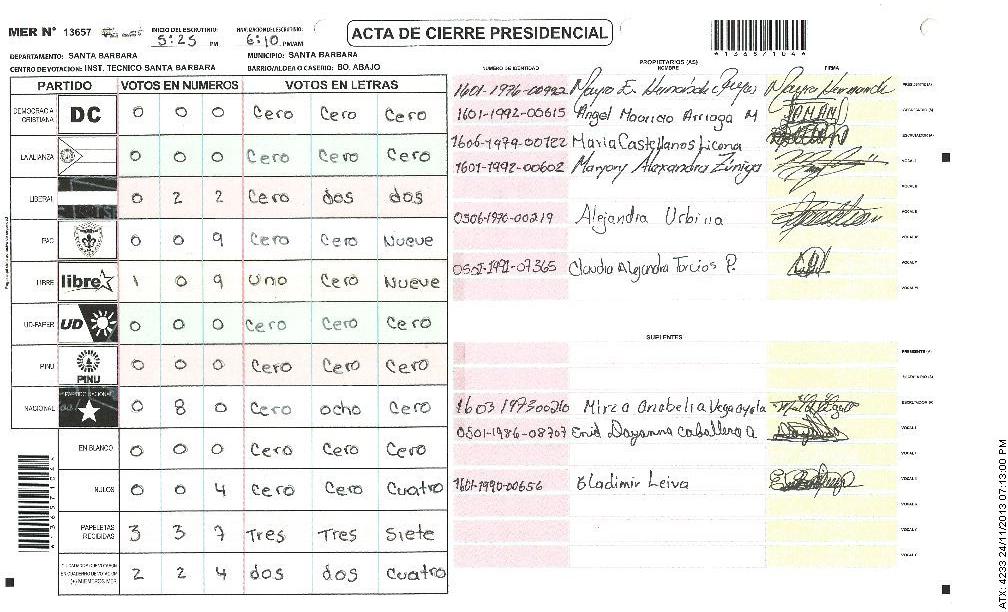 MER Nº 13657 INICIO DEL ESCRUTINIO: 5:25 PM FINALIZACION DEL ESCRUTINIO: 6:10 PM/AM
ACTA DE CIERRE PRESIDENCIAL
DEPARTAMENTO: SANTA BARBARA MUNICIPIO: SANTA BARBARA
CENTRO DE VOTACION: INST. TECNICO SANTA BARBARA BARRIO/ALDEA O CASERIO: BO. ABAJO
PARTIDO VOTOS EN NUMEROS VOTOS EN LETRAS
DEMOCRACIA CRISTIANA DC 0 0 0 Cero Cero Cero
LA ALIANZA 0 0 0 Cero Cero Cero
LIBERAL 0 2 2 Cero dos dos
PAC 0 0 9 Cero Cero Nueve
LIBRE libre 1 0 9 Uno Cero Nueve
UD-FAPER UD 0 0 0 Cero Cero Cero
PINU PINU 0 0 0 Cero Cero Cero
NACIONAL PARTIDO NACIONAL 0 8 0 Cero ocho Cero
EN BLANCO 0 0 0 Cero Cero Cero
NULOS 0 0 4 Cero Cero Cuatro
PAPELETAS RECIBIDAS 3 3 7 Tres Tres Siete
2 2 4 dos dos Cuatro
PROPIETARIOS (AS)
NUMERO DE IDENTIDAD NOMBRE FIRMA
1601-1976-00992 Mayra E. Hernández
1601-1992-00615 Angel Mauricio Arriaga M
1606-1979-00722 Maria Castellanos Licona
1601-1992-00602 Maryory Alexandra Zúniga
0506-1970-00219 Alejandra Urbina
0501-1991-07365 Claudia Alejandra Torcios P.
SUPLENTES
1603 1973 00210 Mirza Anabelia Vega ayala
0501-1986-08707 Enid Dayanna Caballero a
1601-1990-00656 Eladimir Leiva
ATX: 4233 24/11/2013 07:13:00 PM